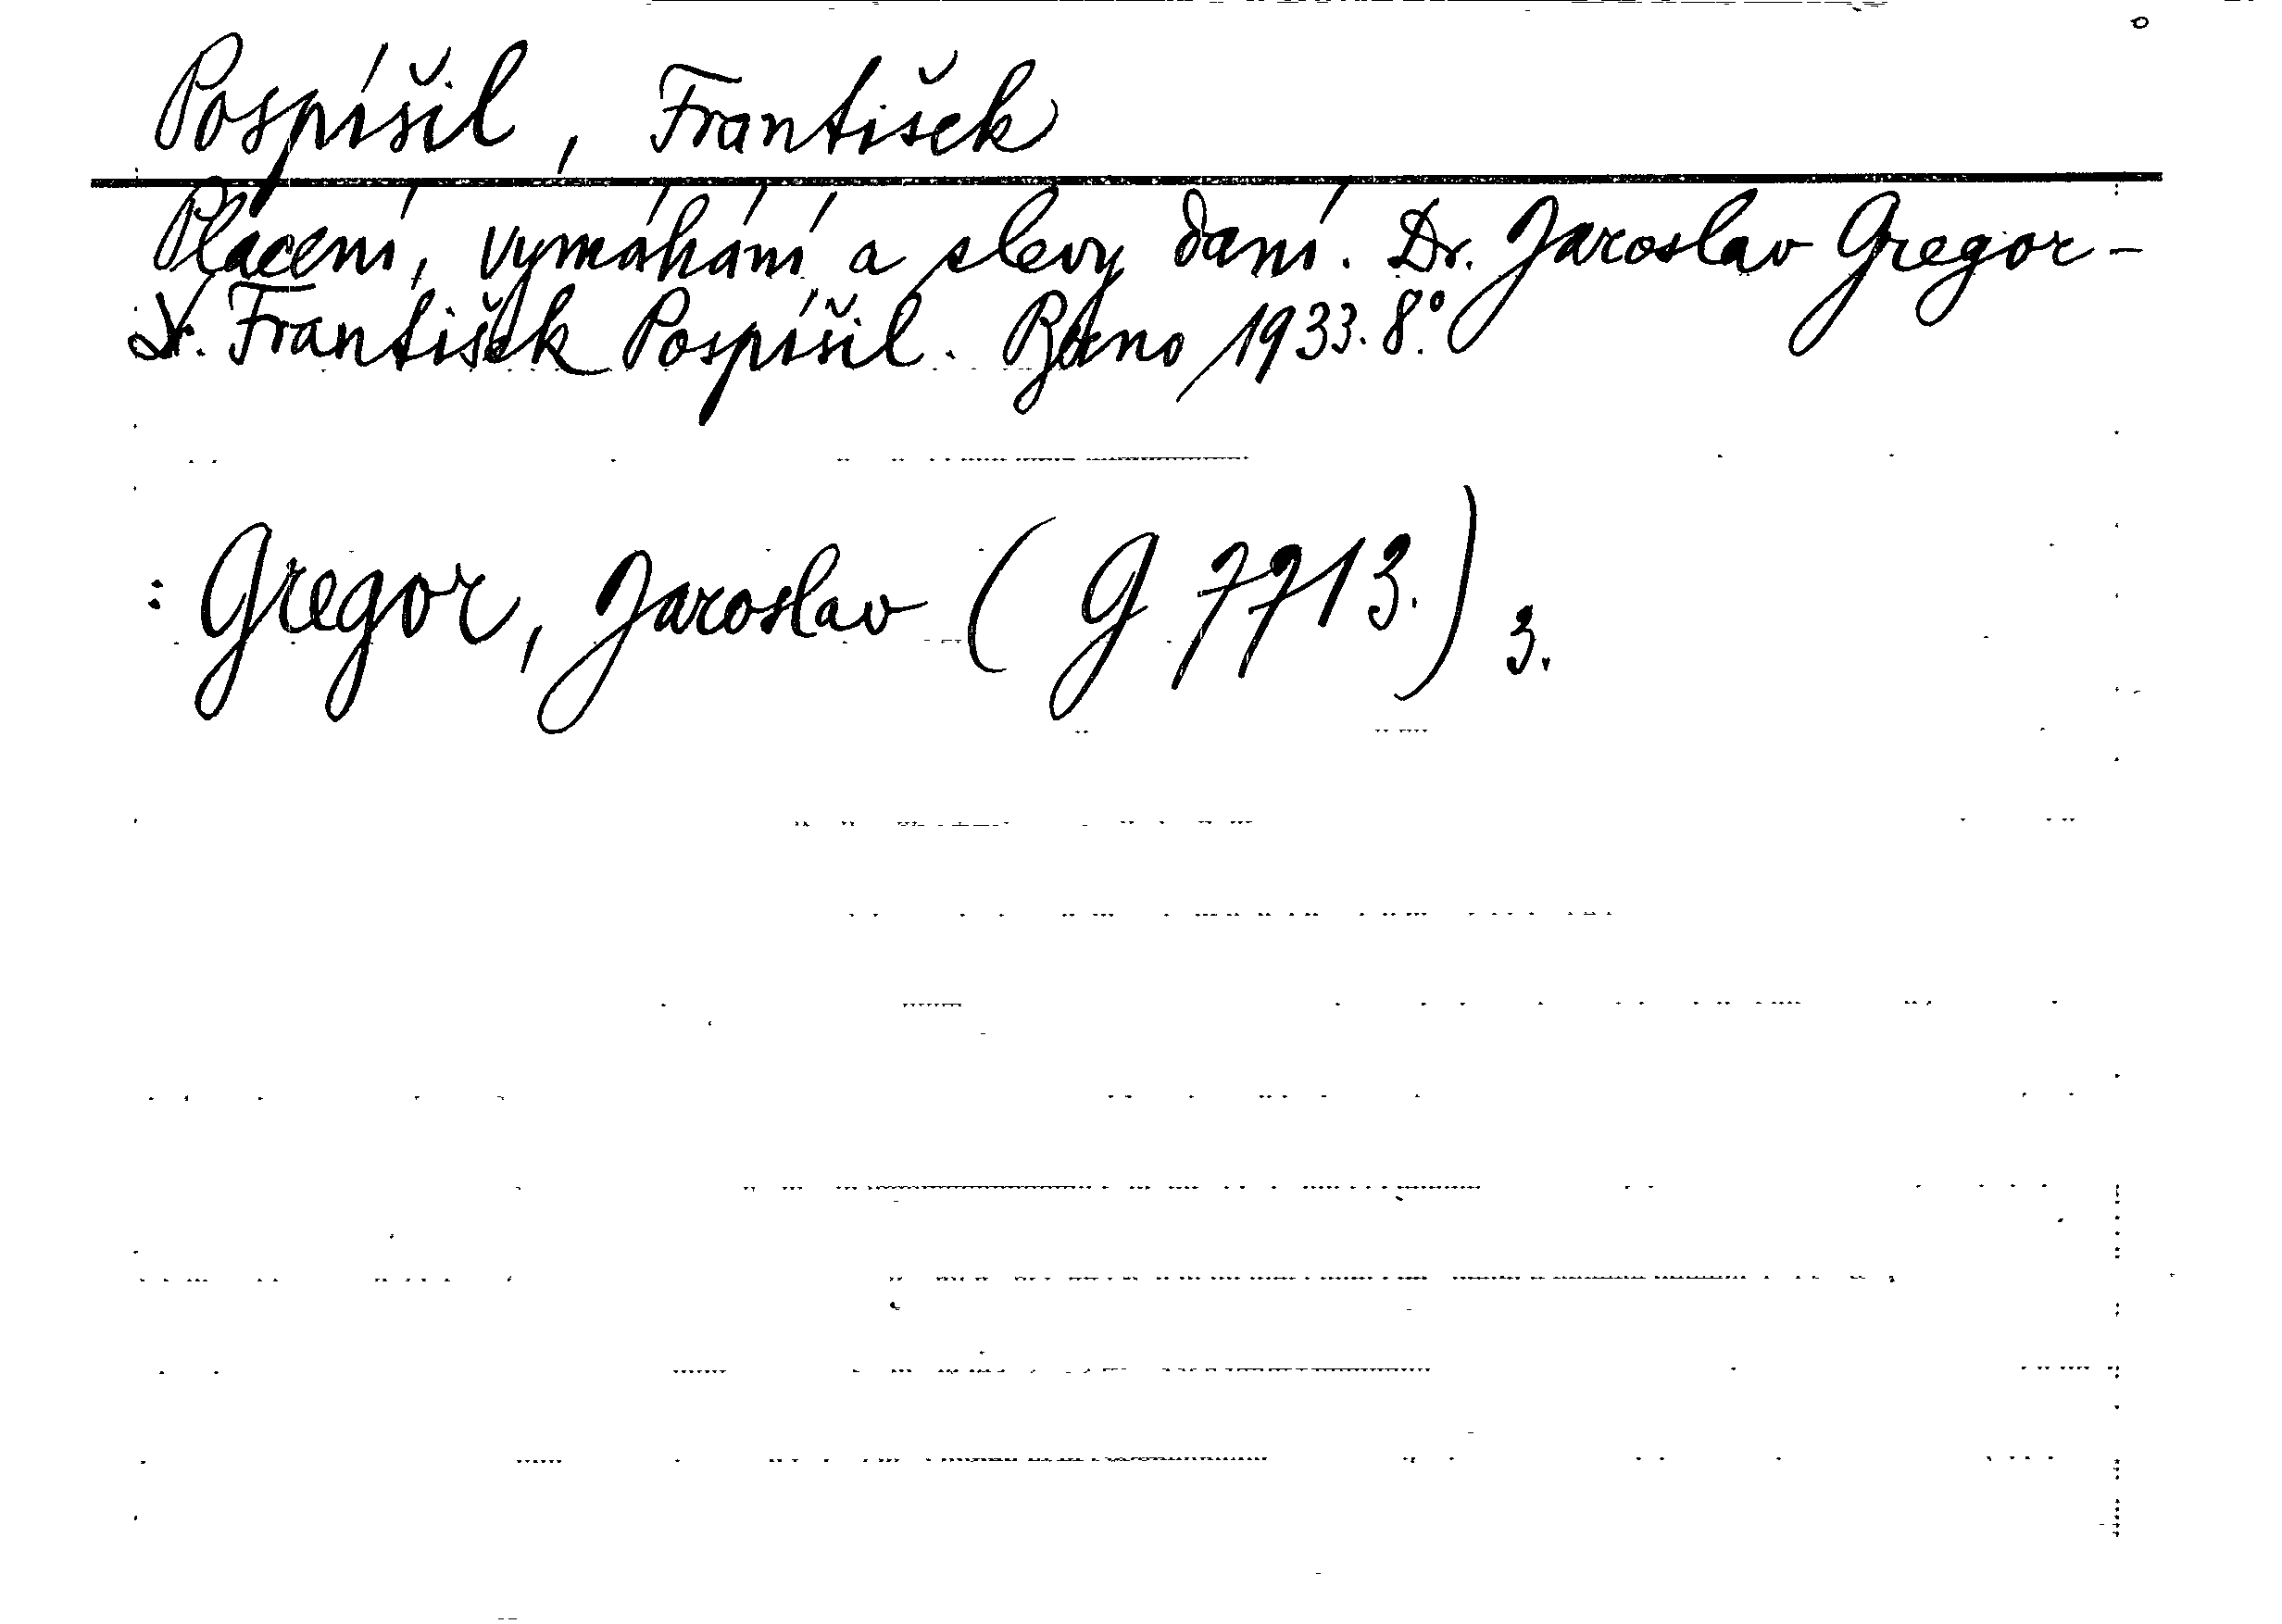 Pospíšil, František
Placení, vymáhání a slevy daní. Dr. Jaroslav Gregor -
Dr. František Pospíšil. Brno 1933. 8°.
: Gregor, Jaroslav ( G 7713.) 3.